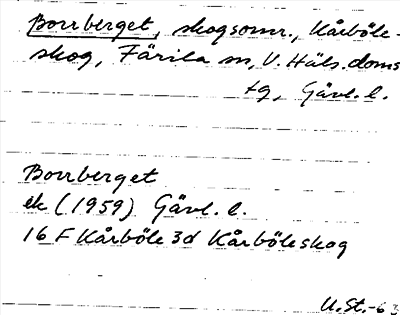 Borrberget, skogsomr., Kårböle-
skog, Färila sn, V. Häls. doms
tg, Gävl. l.
Borrberget
ek (1959) Gävl. l.
16 F Kårböle 3d Kårböleskog
U.St.-63